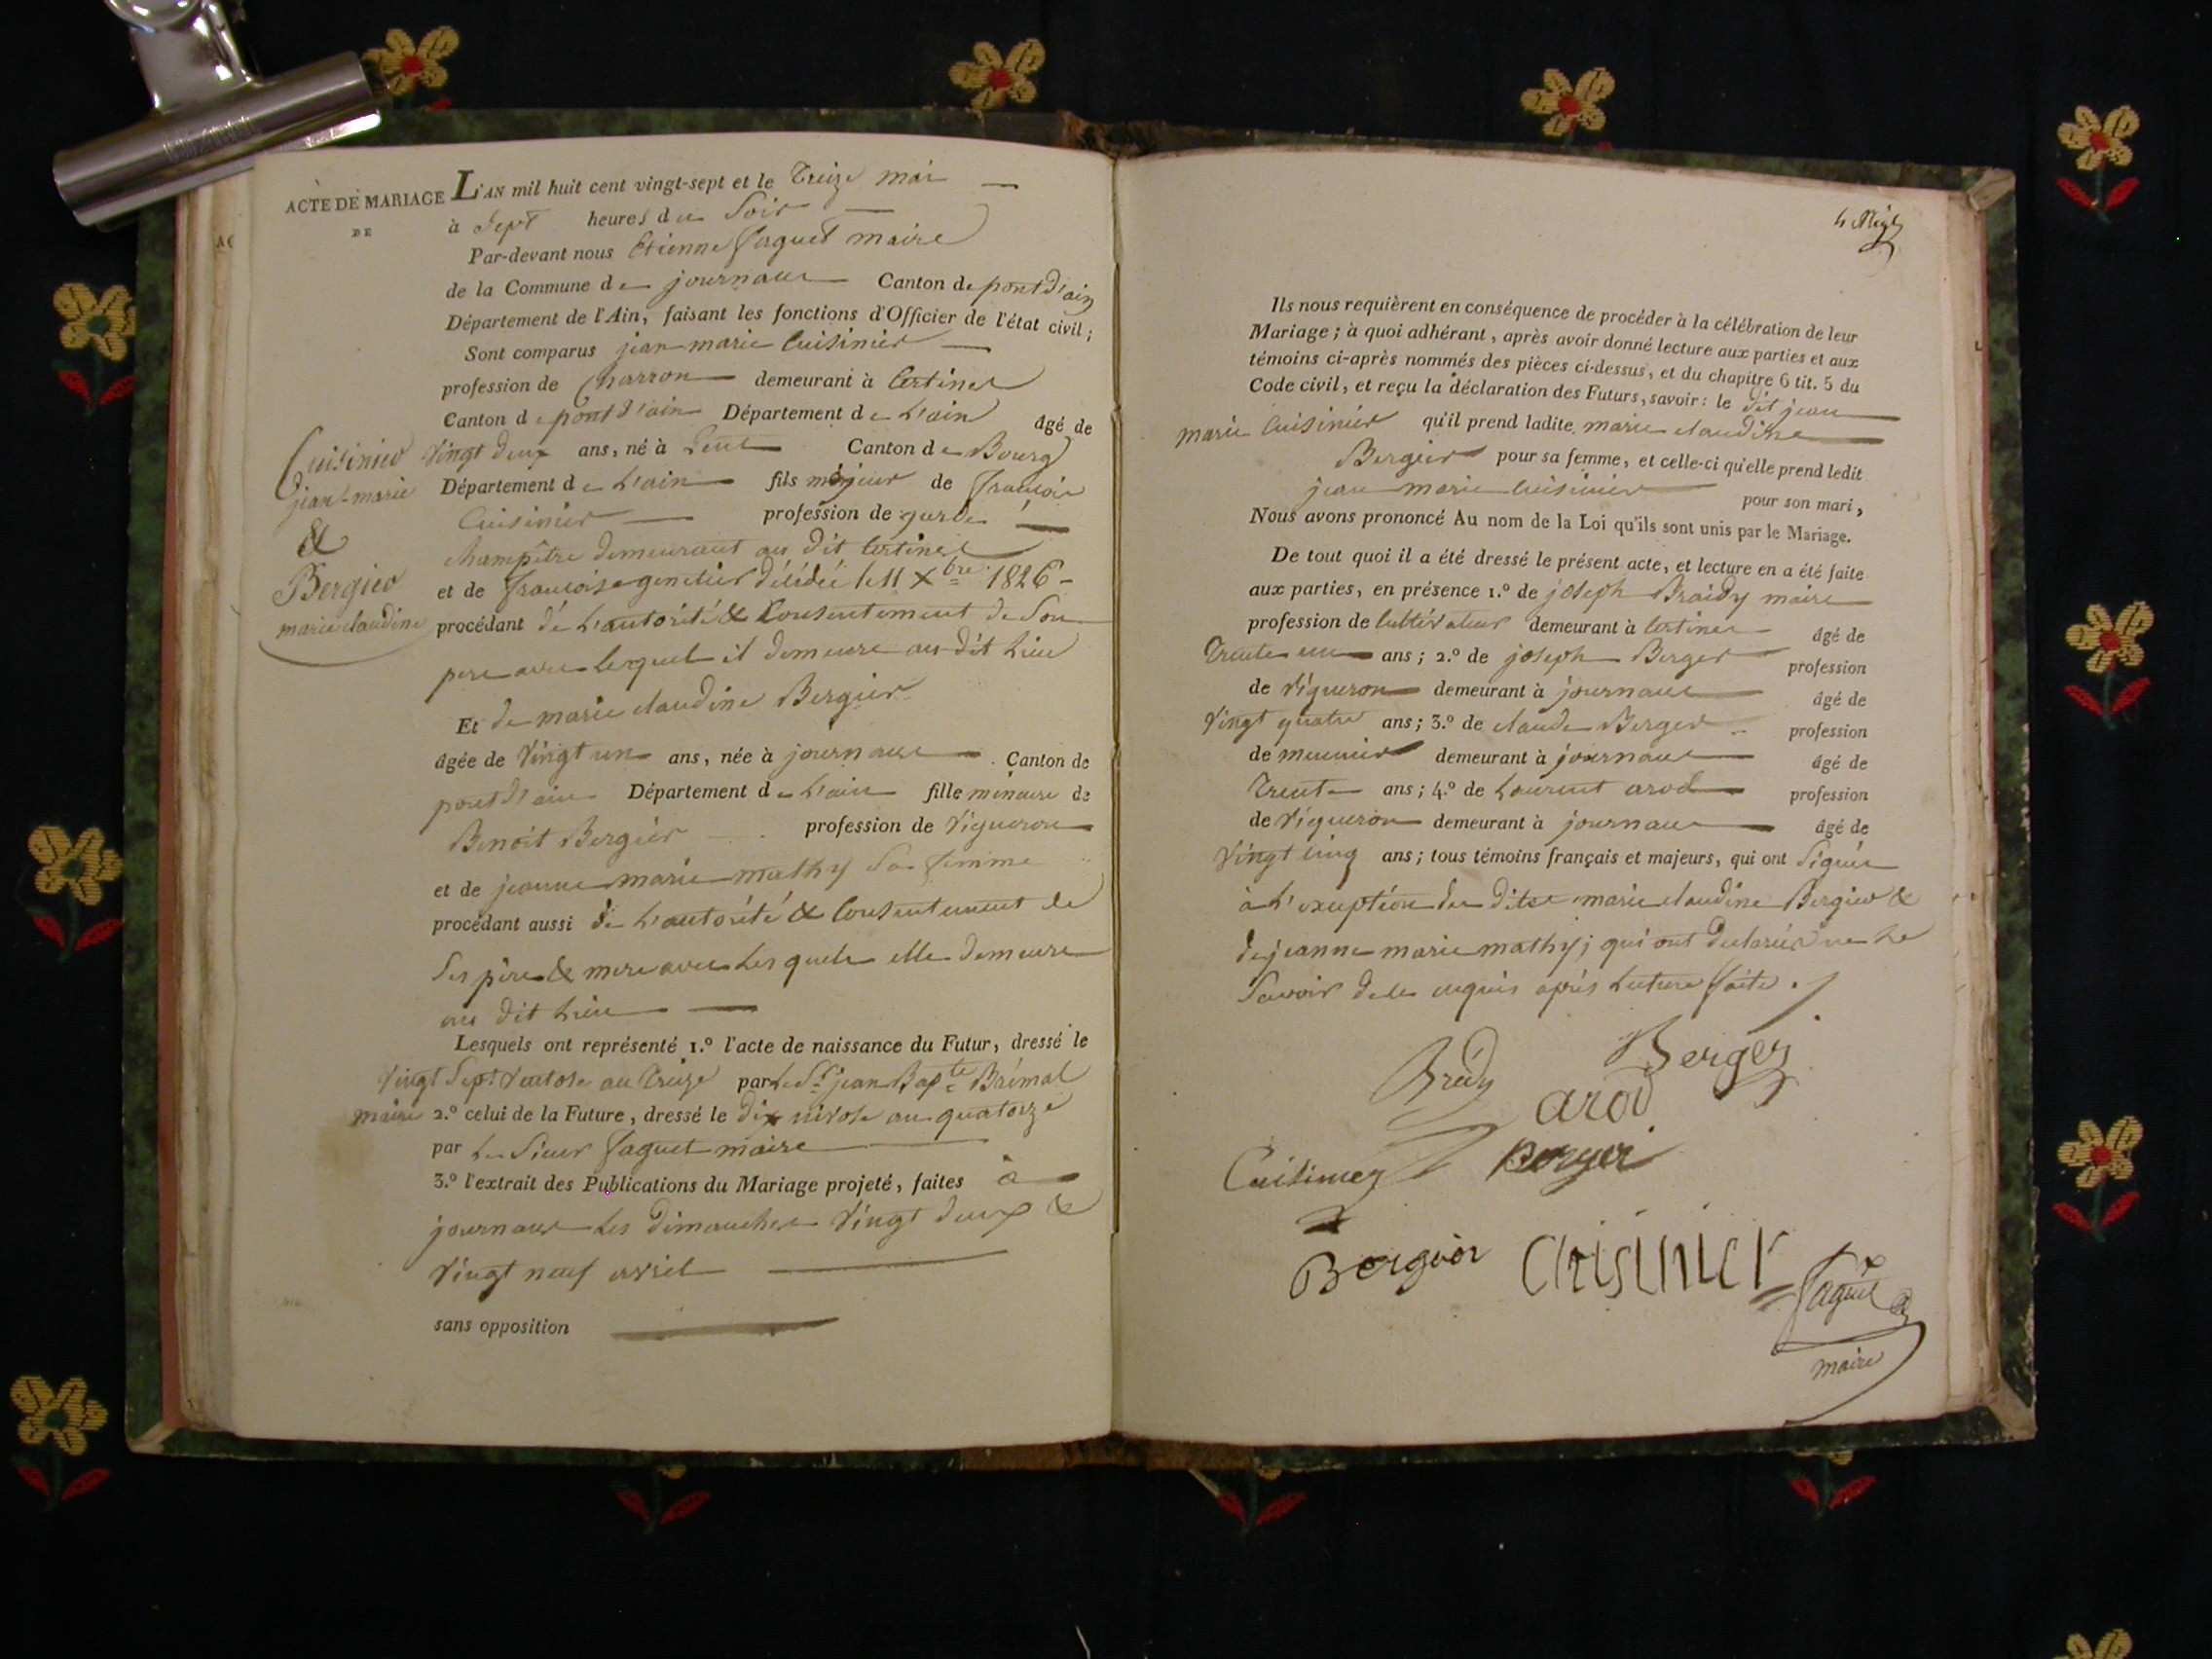 ACTE DE MARIAGE
DE
Cuisinier
jean-marie
&
Bergier
marie claudine
L'AN mil huit cent vingt-sept et le Treize mai
à Sept heures du Soir
Par-devant nous Etienne Jaguet maire
de la Commune de journans Canton de pont d'ain
Département de l'Ain, faisant les fonctions d'Officier de l'état civil;
Sont comparus jean marie Cuisinier
profession de Charron demeurant à Certines
Canton de pont d'ain Département de L'ain âgé de
Vingt deux ans, né à Canton de Bourg
Département de L'ain fils majeur de francois
Cuisinier profession de garde
champêtre demeurant au dit Certines
et de francoise décédée le 11 Xbre 1826
procédant de L'autorité & Consentement de Son
pere avec lequel il demeure au dit Lieu
Et de marie claudine Bergier
âgée de Vingt un ans, née à journans Canton de
pont d'ain Département de L'ain fille mineure de
Benoit Bergier profession de Vigneron
et de jeanne marie mathy Sa femme
procédant aussi de L'autorité & Consentement de
Ses père & mere avec Lesquels elle demeure
au dit Lieu
Lesquels ont représenté 1.º l'acte de naissance du Futur, dressé le
Vingt Sept Ventose an Treize par Le Sr jean Bapte
maire 2.º celui de la Future, dressé le dix nivose an quatorze
par Le Sieur Jaguet maire
3.º l'extrait des Publications du Mariage projeté, faites à
journans Les dimanches Vingt deux &
Vingt neuf avril
sans opposition
Ils nous requièrent en conséquence de procéder à la célébration de leur
Mariage; à quoi adhérant, après avoir donné lecture aux parties et aux
témoins ci-après nommés des pièces ci-dessus, et du chapitre 6 tit. 5 du
Code civil, et reçu la déclaration des Futurs, savoir: le dit jean
marie Cuisinier qu'il prend ladite marie claudine
Bergier pour sa femme, et celle-ci qu'elle prend ledit
jean marie Cuisinier pour son mari,
Nous avons prononcé Au nom de la Loi qu'ils sont unis par le Mariage.
De tout quoi il a été dressé le présent acte, et lecture en a été faite
aux parties, en présence 1.º de joseph Braidy maire
profession de Cultivateur demeurant à Certines âgé de
Trente un ans; 2.º de joseph Berger profession
de Vigneron demeurant à journans âgé de
Vingt quatre ans; 3.º de claude Berger profession
de meunier demeurant à journans âgé de
Trente ans; 4.º de Laurent arod profession
de Vigneron demeurant à journans âgé de
Vingt cinq ans; tous témoins français et majeurs, qui ont Signés
à L'exception de La dite marie claudine Bergier &
de jeanne marie mathy; qui ont declarés ne Le
Savoir de ce requis après Lecture faite.
Brédy
Berger
arod
Cuisinier
Berger
Bergier
Cuisinier
Jaguet
maire